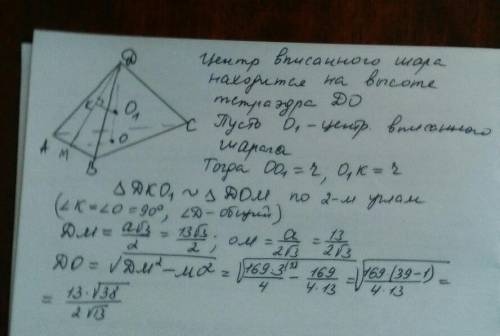 Д
К
О₁
А
М
О
С
В
Центр вписанного шара
находится на высоте
тетраэдра ДО
Пусть О₁ - центр вписанного
шара
Тогда ОО₁ = r, О₁К = r
Δ ДКО₁ ~ Δ ДОМ по 2-м углам
(∠К = ∠О = 90°, ∠Д - общий)
ДМ = a√3/2 = 13√3/2; ОМ = a/2√3 = 13/2√3
ДО = √(ДМ² - МО²) = √(169·3⁽¹³⁾/4 - 169/4·13) = √(169(39-1)/4·13) =
= 13·√38/2√13